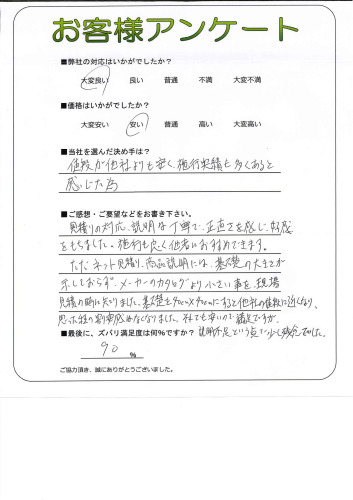 お客様アンケート
■弊社の対応はいかがでしたか？
大変良い 良い 普通 不満 大変不満
■価格はいかがでしたか？
大変安い 安い 普通 高い 大変高い
■当社を選んだ決め手は？
値段が他社よりも安く、施行実績も多くあると
感じた為
■ご感想・ご要望などをお書き下さい。
見積りの対応、説明は丁寧で、正直さを感じ、好感
をもちました。施行も良く他者におすすめできます。
ただネット見積り、商品説明には、基礎の大きさが
示しておらず、メーカーのカタログより小さい事を、現場
見積の時に知りました。基礎を90cm×90cmにすると他社の値段に近くなり、
思った程の割安感はなくなりました。それでも安いので満足ですが、
■最後に、ズバリ満足度は何％ですか？ 説明不足という点で少し残念でした。
90 %
ご協力頂き、誠にありがとうございました。